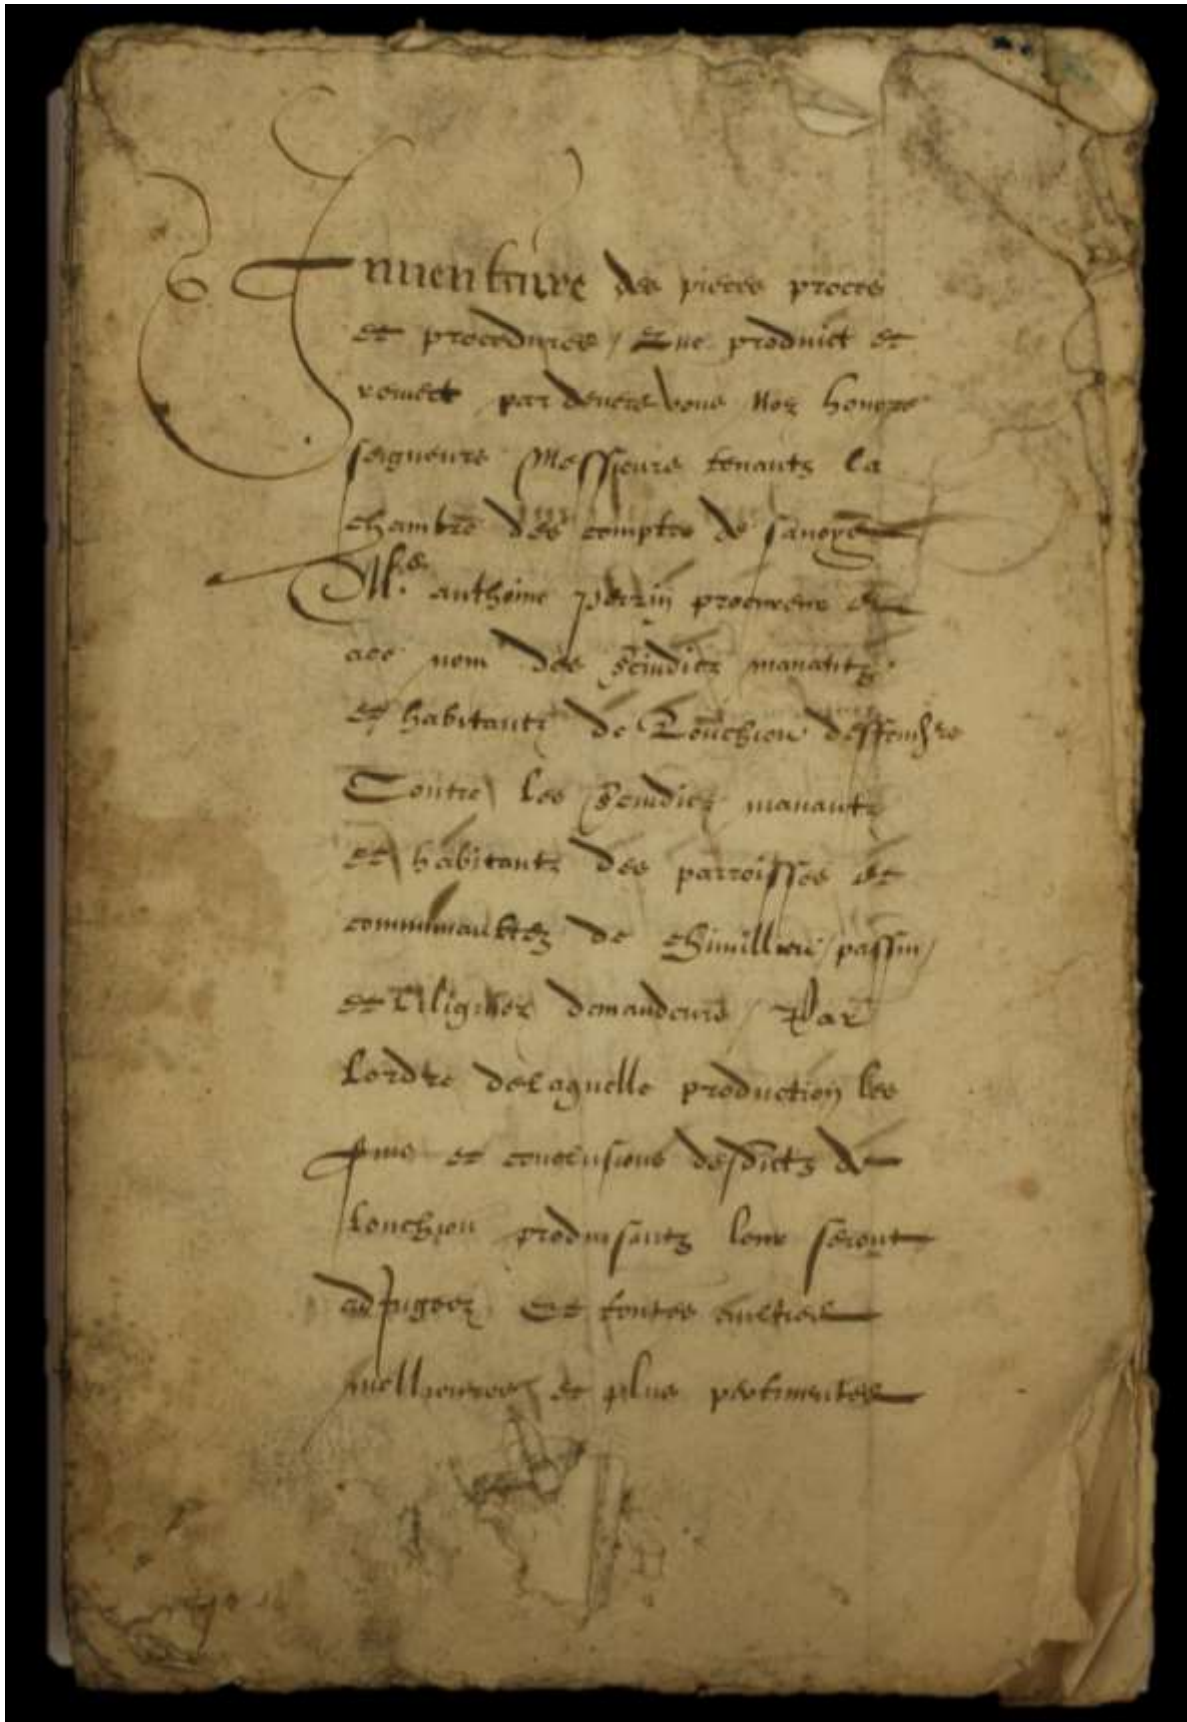 Inventaire des pieces proces
et procedures / Que produict et
remect par devers vous Noz honore
seigneurs Messieurs tenantz la
chambre des comptes de savoye
Me. anthoine perrin procureur et
au nom des scindicz manantz
et habitantz de Conchieu deffendre
Contre les scindicz manantz
et habitantz des parroisses et
communaultez de Chimillieu / passin /
et demandeurs / Par
lordre de laquelle production les
fins et conclusions desdictz de
Conchieu produisantz leur seront
adjugees Et toutes aultres
mellieures et plus pertinentes